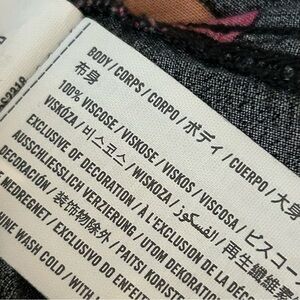 BODY / CORPS / CORPO / ボディ / CUERPO / 大身
布身
100% VISCOSE / VISKOSE / VISKOS / VISCOSA / ビスコー
VISKOZA / 비스코스 / WISKOZA / الفسكوز / 再生纖維素
EXCLUSIVE OF DECORATION / A L'EXCLUSION DE LA DÉCO
AUSSCHLIESSLICH VERZIERUNG / UTOM DEKORATION
DECORACIÓN / 装饰物除外 / PAITSI KORIST
E MEDREGNET / EXCLUSIVO DO ENFEI
HINE WASH COLD / WITH L